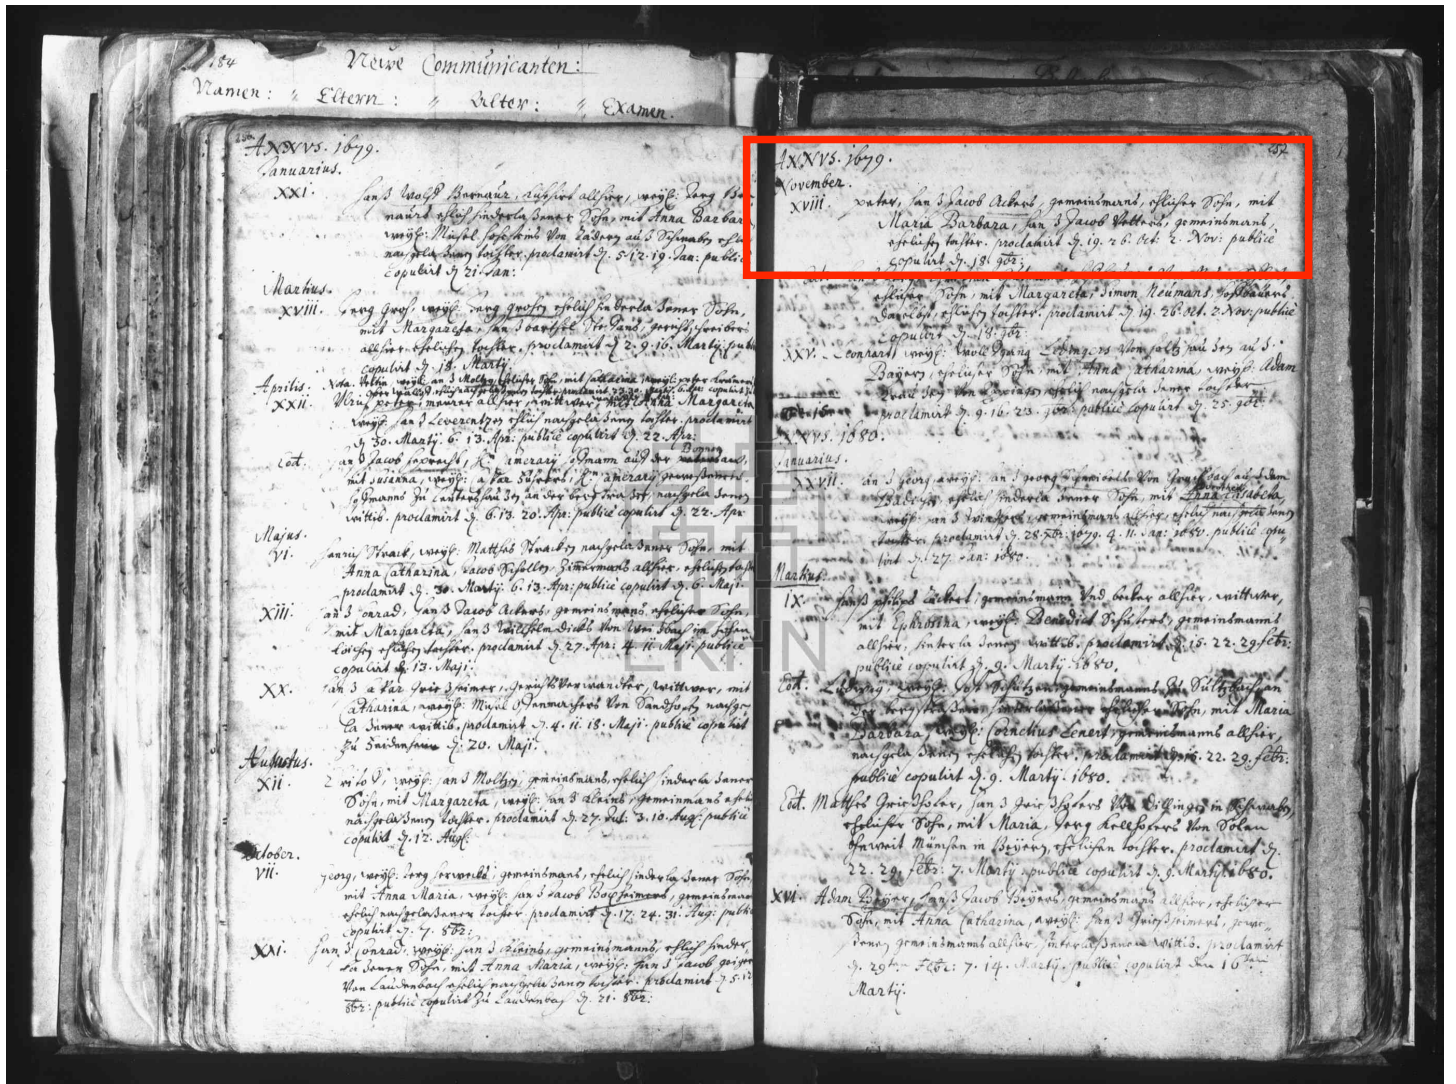 184
Newe Communicanten:
Namen: " Eltern: " Alter: " Examen.
ANNVS. 1679.
Januarius.
XXI. Hanß Wolff Bernaur, allhier, weyl: Jerg
naurs ehlich hinderlaßener Sohn, mit Anna Barbara
weyl: Michel von auß Schwaben
nachgelaßenen tochter. proclamirt d. 5. 12. 19. Jan: public
copulirt d. 21. Jan:
Martius.
XVIII. Jerg Groß, weyl: Jerg Großen ehelich hinderlaßener Sohn,
mit Margareta, Hanß barthel gerichtschreibers
allhier ehelichen tochter. proclamirt d. 2. 9. 16. Martij: publ
copulirt d. 18. Martij.
Aprilis.
XXII. peter, meurer allhier, wittwer, mit Anna Margareta
weyl: Hanß Leverentzen ehlich nachgelaßenen tochter. proclamirt
d. 30. Martij. 6. 13. Apr: publicè copulirt d. 22. Apr:
Eod. Hanß Jacob auff der
mit Susanna, weyl:
Zu an der bergstraßen, nachgelaßenen
wittib. proclamirt d. 6. 13. 20. Apr: publicè copulirt d. 22. Apr
Majus.
VI. Henrich Strack, weyl: Matthes Stracken nachgelaßener Sohn, mit
Anna Catharina, Jacob Schollen, Zimermans allhier, ehelichen tochter
proclamirt d. 30. Martij. 6. 13. Apr: publicè copulirt d. 6. Maji.
XIII. Hanß Conrad, Hanß Jacob Ackers, gemeinsmans, ehelicher Sohn,
mit Margareta, Hanß Willhelm Dicks von
ehlichen tochter. proclamirt d. 27. Apr: 4. 11. Maji. publicè
copulirt d. 13. Maji.
XX. Hanß Caspar Grießheimer, Gerichtsverwandter, wittwer, mit
Catharina, weyl: Michel Odenweihers von Sandhofen nachge
laßener wittib. proclamirt d. 4. 11. 18. Maji. publicè copulirt
zu d. 20. Maji.
Augustus.
XII. weyl: Hanß Moltzen, gemeinsmans, ehelich hinderlaßener
Sohn, mit Margareta, weyl: Hanß Kleins, gemeinmans ehel
nachgelaßenen tochter. proclamirt d. 27. Jul: 3. 10. Aug: publicè
copulirt d. 12. Aug:
October.
VII. Georg, weyl: Jerg gemeinsmans, ehelich hinderlaßener Sohn,
mit Anna Maria, weyl: Hanß Jacob Boxheimers, gemeinsman
ehelich nachgelaßener tochter. proclamirt d. 17. 24. 31. Aug: publ
copulirt d. 7. 8br:
XXI. Hanß Conrad, weyl: Hanß Kleins, gemeinsmanns, ehlich hinder
laßener Sohn, mit Anna Maria, weyl: Hanß Jacob geiger
von Laudenbach ehelich nachgelaßenen tochter. proclamirt d. 5. 12
8br: publicè copulirt zu Laudenbach d. 21. 8br:
ANNVS. 1679.
November.
XVIII. peter, Hanß Jacob Ackers, gemeinsmans, ehlicher Sohn, mit
Maria Barbara, Hanß Jacob Vetters, gemeinsmans,
ehelichen tochter. proclamirt d. 19. 26. Oct: 2. Nov: publicè
copulirt d. 18. 9br:
ehlicher Sohn, mit Margareta, Simon Neumans,
daselbst, ehlichen tochter. proclamirt d. 19. 26. Oct. 2. Nov: publicè
copulirt d. 18. 9br:
XXV. Leonhart, weyl: Wolffgang von auß
Bayern, ehelicher Sohn, mit Anna Catharina, weyl: Adam
ehelich nachgelaßener tochter
proclamirt d. 9. 16. 23. 9br: publicè copulirt d. 25. 9br:
ANNVS. 1680.
Januarius.
XXVII. Hanß Georg, weyl: Hanß Georg von auß dem
ehelich hinderlaßener Sohn, mit Anna Elisabeta,
weyl: Hanß gemeinsmans allhier, ehelich nachgelaßenen
tochter. proclamirt d. 28. Xbr: 1679. 4. 11. Jan: 1680. publicè copu
lirt d. 27. Jan: 1680.
Martius.
IX. Hanß philips Eckert, gemeinsmann und becker allhier, wittwer,
mit Euphrosina, weyl: Benedict Schusters, gemeinsmanns
allhier, hinterlaßenen wittib. proclamirt d. 15. 22. 29. febr:
publicè copulirt d. 9. Martij 1680.
Eod. Ludwig, weyl: Jost Schützen, gemeinsmanns zu Sultzbach, an
der bergstraßen, hinterlaßener ehelicher Sohn, mit Maria
Barbara, weyl: Cornelius Lenert, gemeinsmanns allhier,
nachgelaßenen ehelichen tochter. proclamirt d. 15. 22. 29. febr:
publicè copulirt d. 9. Martij. 1680.
Eod. Matthes Griesshofer, Hanß Griesshofers von Dillingen in Schwaben,
ehelicher Sohn, mit Maria, Jerg Kellhofers von
ohnweit München in Beyern, ehelichen tochter. proclamirt d.
22. 29. febr: 7. Martij. publicè copulirt d. 9. Martij 1680.
XVI. Adam Beyer, Hanß Jacob Beyers, gemeinsmans allhier, ehelicher
Sohn, mit Anna Catharina, weyl: Hanß Grießheimers, gewe-
senen gemeinsmans allhier, hinterlaßenen wittib. proclamirt
d. 29ten Febr: 7. 14. Martij. publicè copulirt den 16ten
Martij.
EKHN